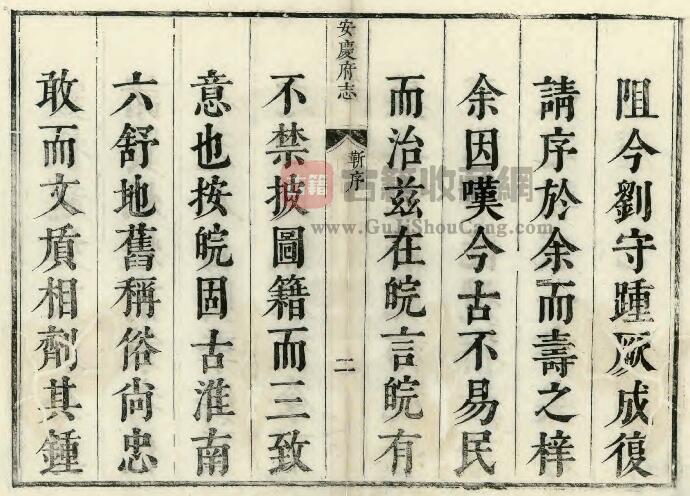 阻今劉守踵厥成復
請序於余而壽之梓
余因嘆今古不易民
而治兹在皖言皖有
安慶府志
靳序
二
不禁披圖籍而三致
意也按皖固古淮南
六舒地舊稱俗尚忠
敢而文質相劑其鍾
古籍
古籍收藏網
www.GuJiShouCang.com